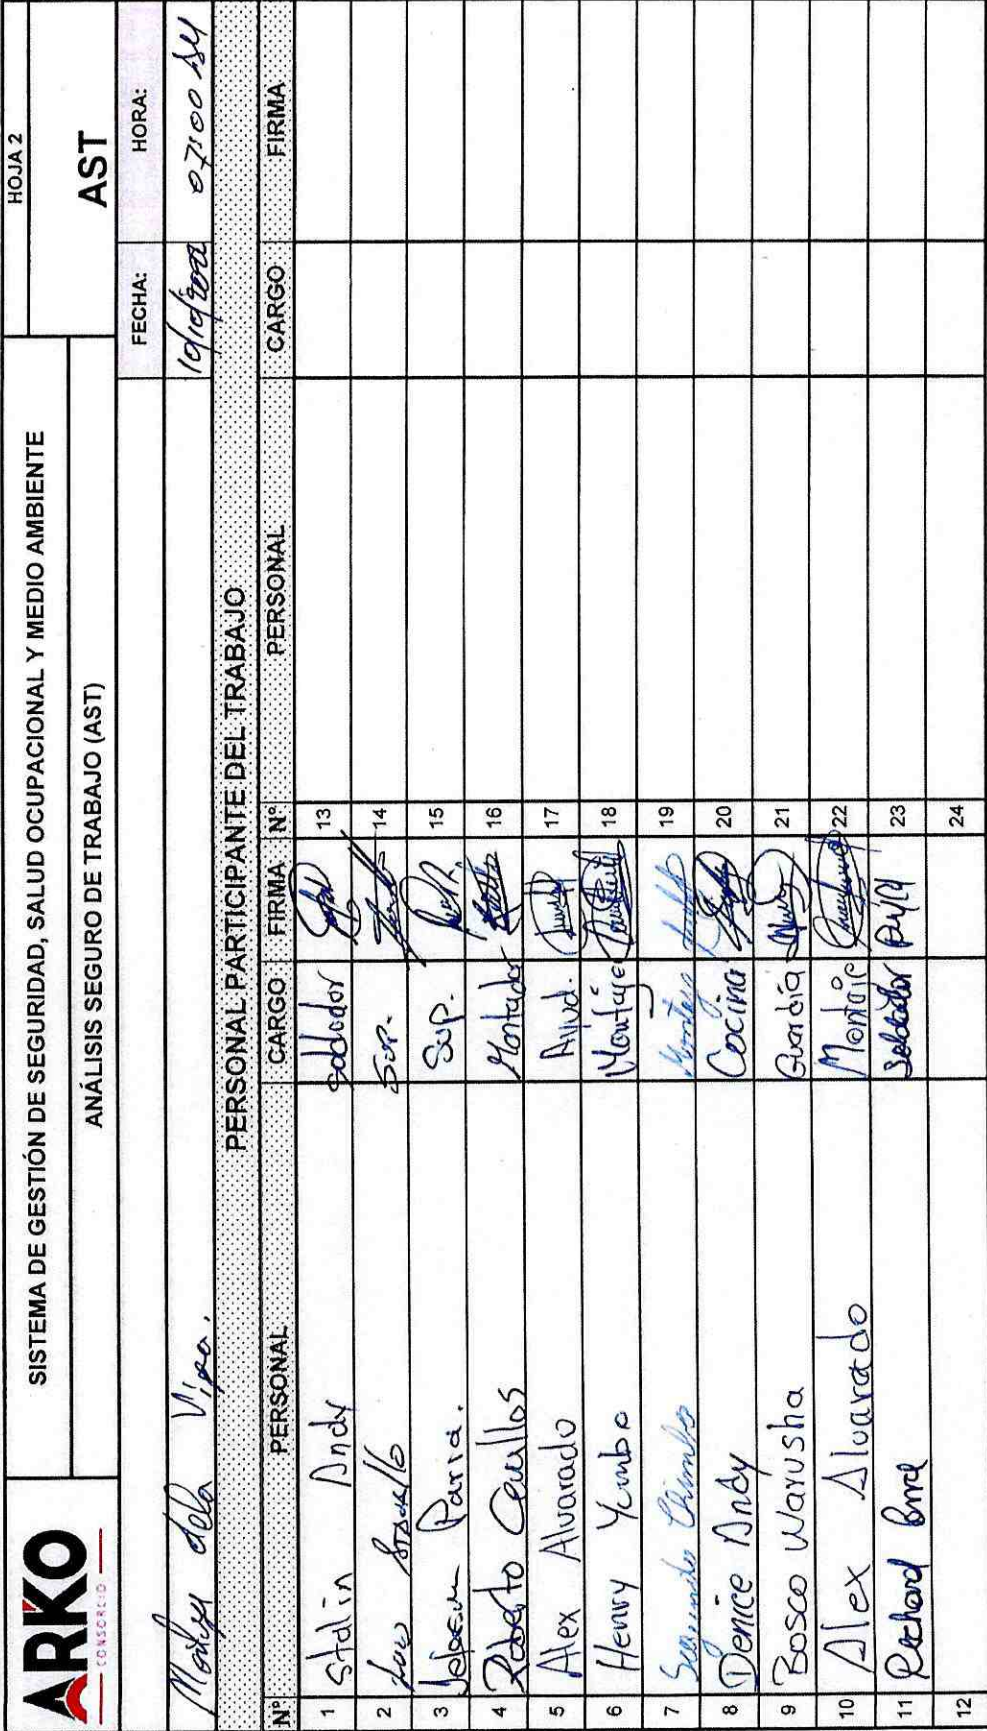 ARKO
CONSORCIO
SISTEMA DE GESTIÓN DE SEGURIDAD, SALUD OCUPACIONAL Y MEDIO AMBIENTE
HOJA 2
ANÁLISIS SEGURO DE TRABAJO (AST)
AST
FECHA: HORA:
10/10/2022 07:00
PERSONAL PARTICIPANTE DEL TRABAJO
Nº PERSONAL CARGO FIRMA Nº PERSONAL CARGO FIRMA
1 Stalin Andy soldador 13
2 Sup. 14
3 Parra. Sup. 15
4 Roberto Cevallos Montador 16
5 Alex Alvarado Ayud. 17
6 Henry Yumbo Montaje 18
7 Segundo Chimbo Montaje 19
8 Denice Andy Cocina 20
9 Bosco Warusha Guardia 21
10 Alex Alvarado Montaje 22
11 Richard Soldador 23
12 24